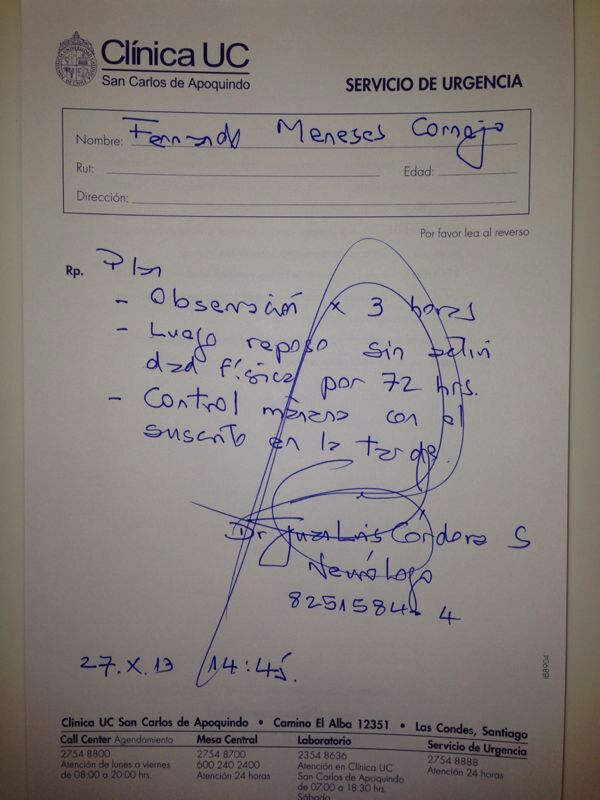 Clínica UC
San Carlos de Apoquindo
SERVICIO DE URGENCIA
Nombre: Fernando Meneses Cornejo
Rut:
Edad:
Dirección:
Por favor lea al reverso
Rp. Plan
- Observación x 3 horas
- Luego reposo sin activi
dad física por 72 hrs.
- Control mañana con el
suscrito en la tarde.
Dr Juan Luis Córdova S
Neurólogo
8251584-4
27.X.13 14:45.
188904
Clínica UC San Carlos de Apoquindo • Camino El Alba 12351 • Las Condes, Santiago
Call Center Agendamiento
2754 8800
Atención de lunes a viernes
de 08:00 a 20:00 hrs.
Mesa Central
2754 8700
600 240 2400
Atención 24 horas
Laboratorio
2354 8636
Atención en Clínica UC
San Carlos de Apoquindo
de 07:00 a 18:30 hrs.
Sábado
Servicio de Urgencia
2754 8888
Atención 24 horas